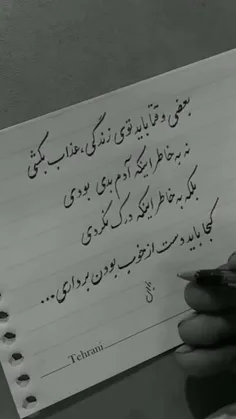 بعضی وقتا باید توی زندگی، عذاب بکشی
نه به خاطر اینکه آدم بدی بودی
بلکه به خاطر اینکه درک نکردی
کجا باید دست از خوب بودن برداری...
Tehrani